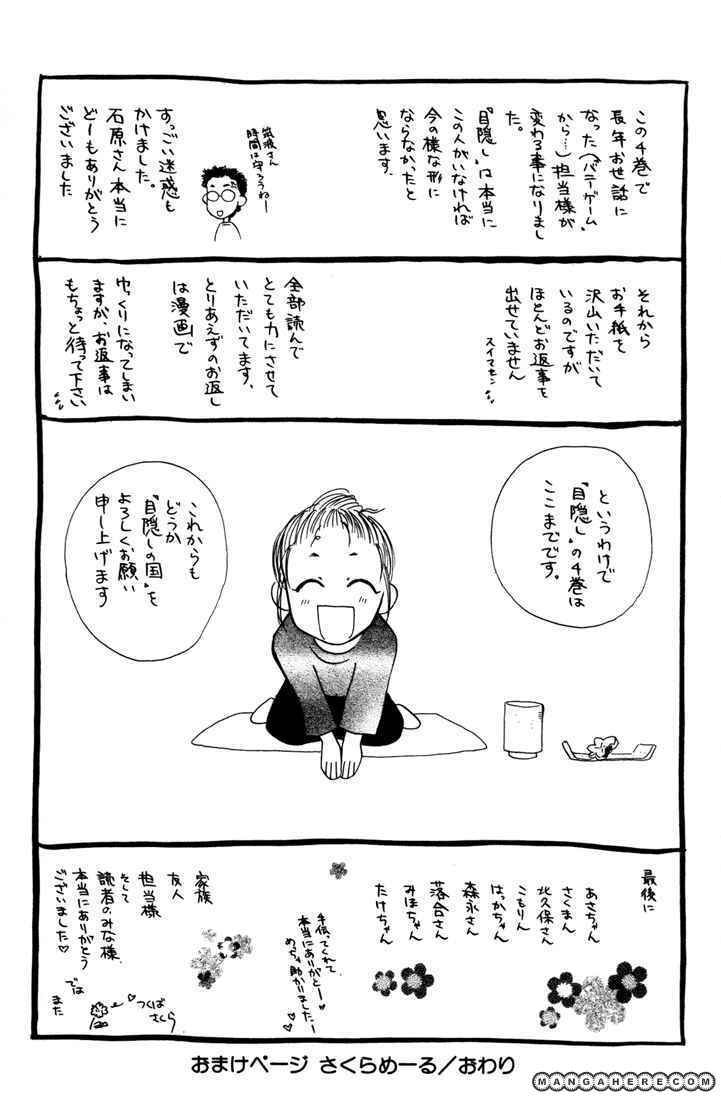 この4巻で
長年お世話に
なった(『バテーゲーム』
から…)担当様が
変わる事になりまし
た。
『目隠し』は本当に
この人がいなければ
今の様な形に
ならなかったと
思います。
筑波さん
時間は守ろうねー
すっごい迷惑も
かけました。
石原さん本当に
どーもありがとう
ございました
それから
お手紙を
沢山いただいて
いるのですが
ほとんどお返事を
出せていません
スイマセン
全部読んで
とても力にさせて
いただいてます、
とりあえずのお返し
は漫画で
ゆっくりになってしまい
ますが、お返事は
もちょっと待って下さい
というわけで
『目隠し』の4巻は
ここまでです。
これからも
どうか
『目隠しの国』を
よろしくお願い
申し上げます
最後に
あさちゃん
さくまん
北久保さん
こもりん
はっかちゃん
森永さん
落合さん
みほちゃん
たけちゃん
手伝ってくれて
本当にありがとー
めっちゃ助かりましたー
家族
友人
担当様
そして
読者のみな様、
本当にありがとう
ございました♡
では
また
つくば
さくら
おまけページ さくらめーる/おわり
MANGAHERE.COM